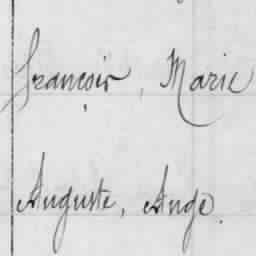 François, Marie
Auguste, Ange.